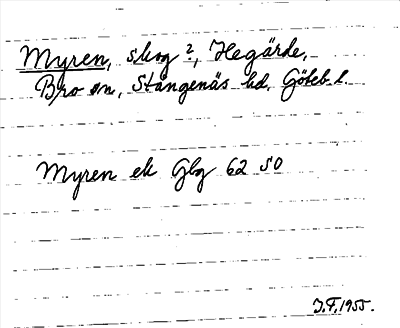 Myren, skog?, Hegärde,
Bro sn, Stångenäs hd, Göteb. l.
Myren ek Gbg 62 SO
J.F. 1955.